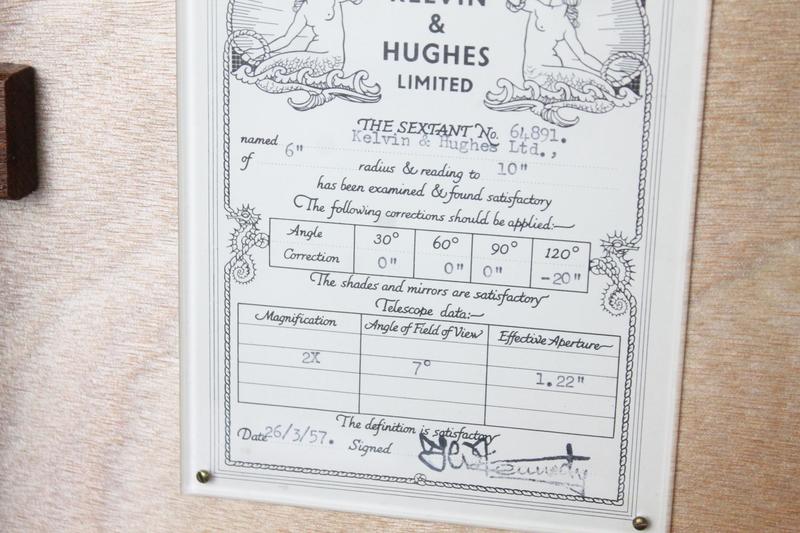 KELVIN
&
HUGHES
LIMITED
THE SEXTANT No. 64891.
named Kelvin & Hughes Ltd.,
of 6" radius & reading to 10"
has been examined & found satisfactory
The following corrections should be applied:—
Angle 30° 60° 90° 120°
Correction 0" 0" 0" -20"
The shades and mirrors are satisfactory
Telescope data:—
Magnification Angle of Field of View Effective Aperture
2X 7° 1.22"
The definition is satisfactory
Date 26/3/57. Signed Kennedy